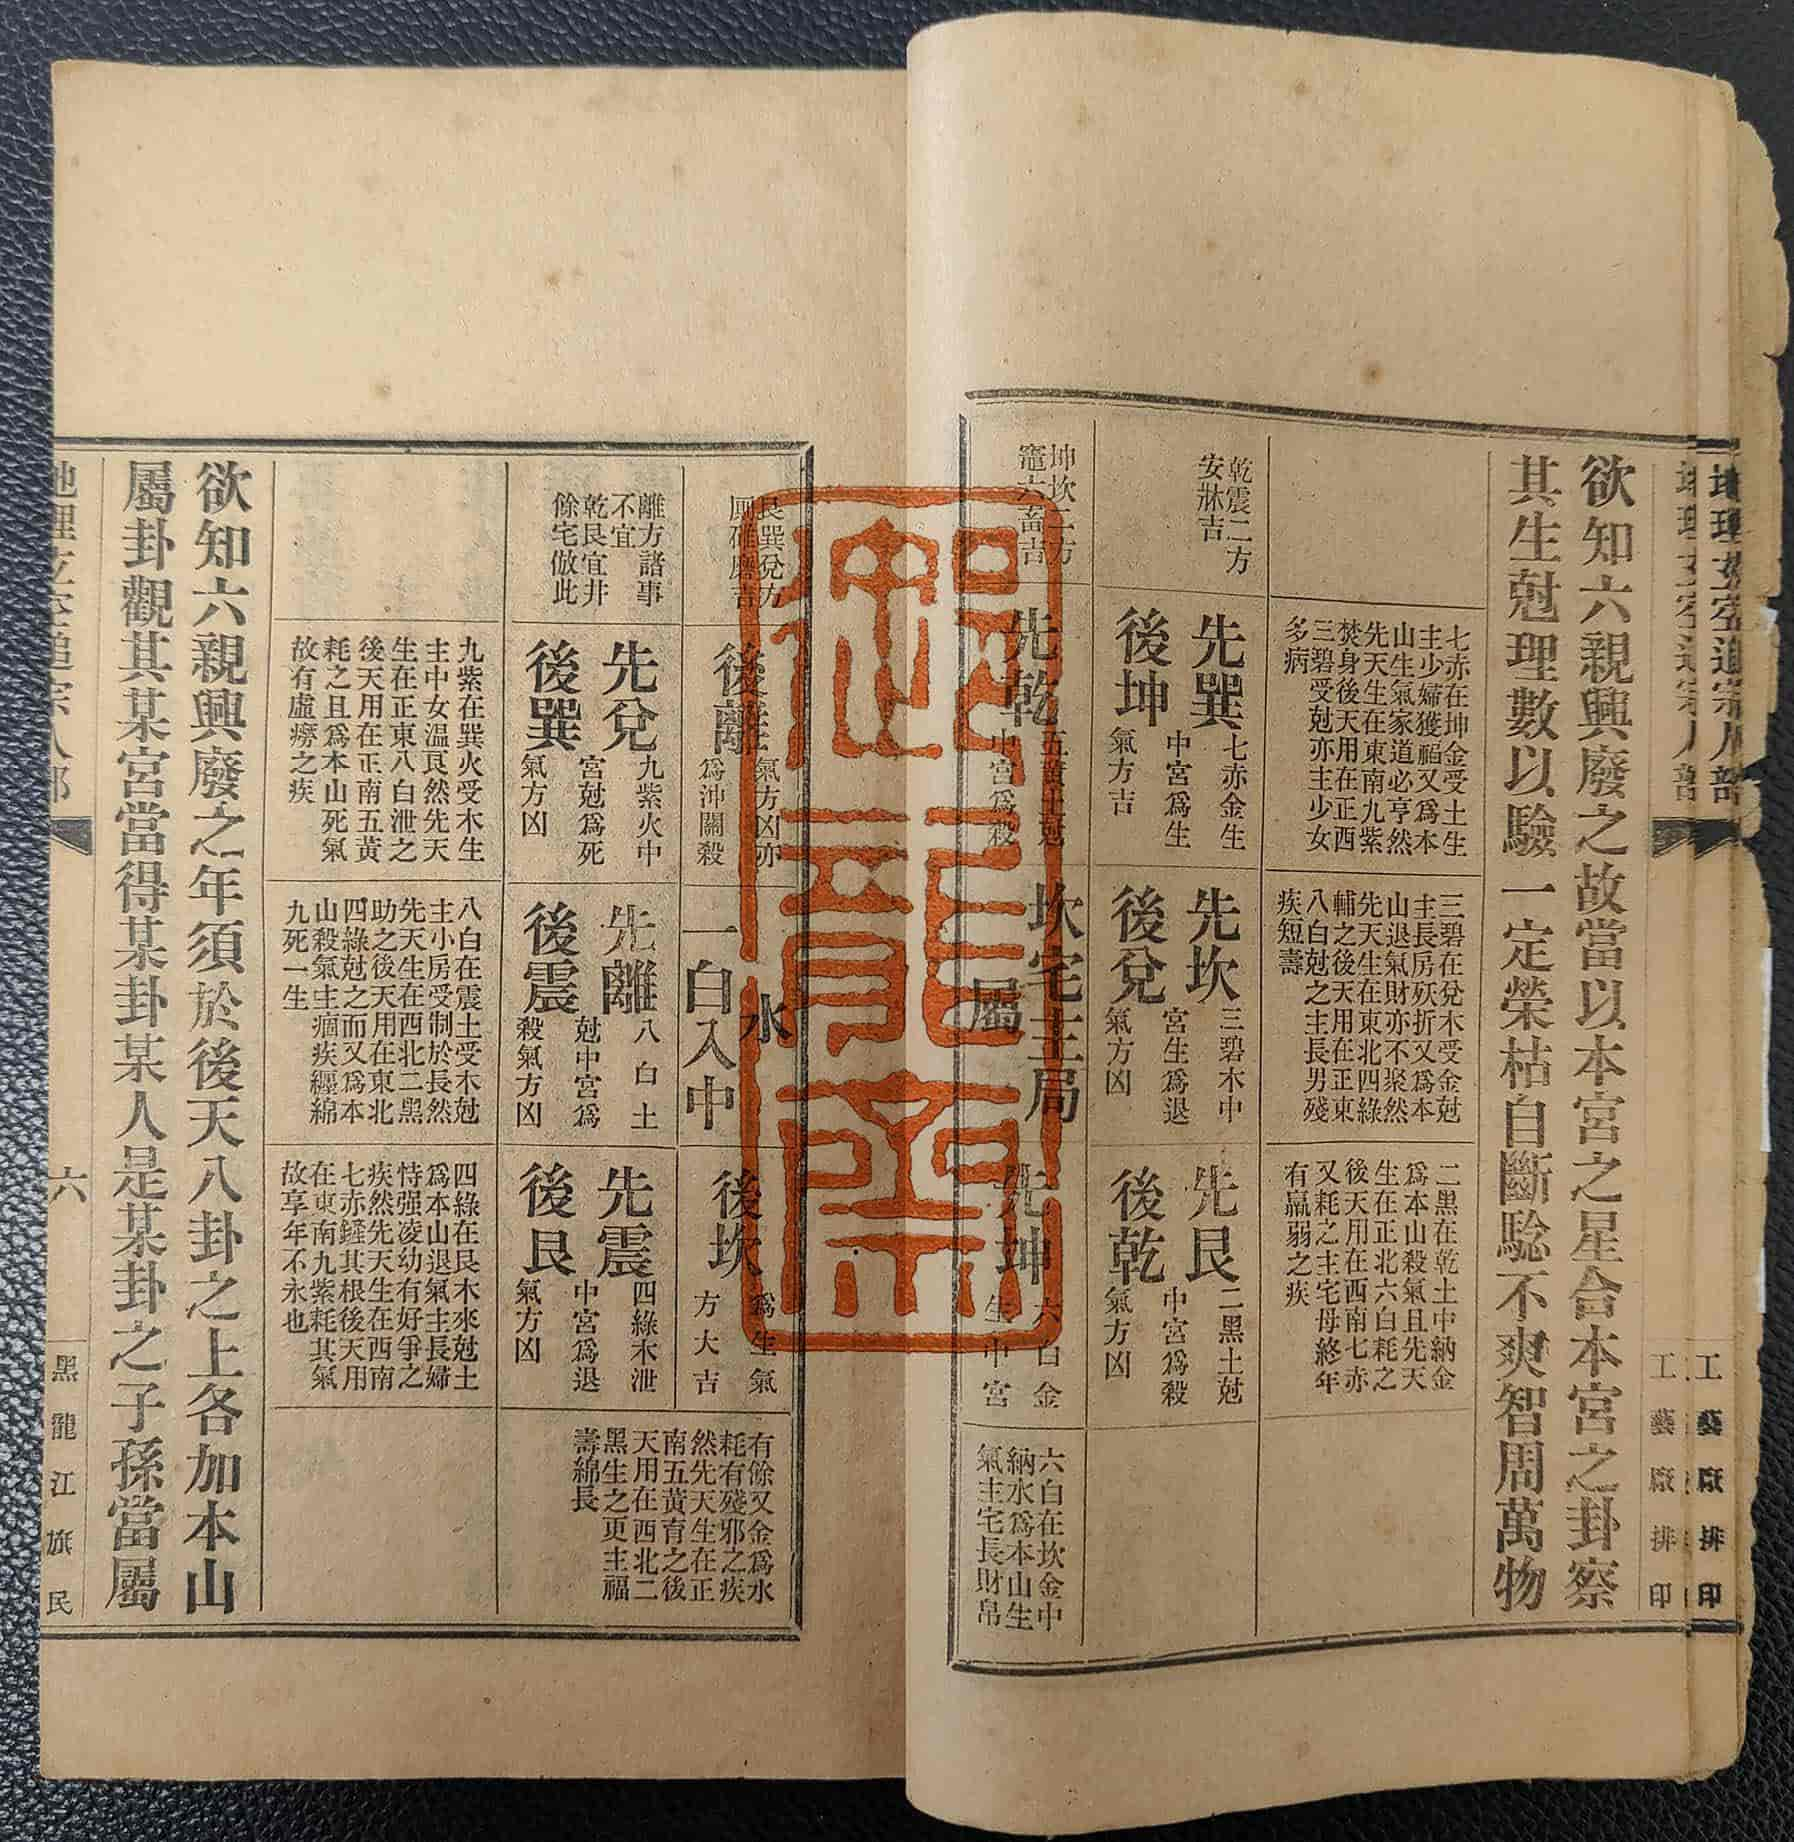 地理玄空追宗人部
工藝廠排印
欲知六親興廢之故當以本宮之星合本宮之卦察
其生尅理數以驗一定榮枯自斷騐不爽智周萬物
七赤在坤金受土生
主少婦獲福又爲本
山生氣家道必亨然
先天生在東南九紫
焚身後天用在正西
三碧受尅亦主少女
多病
三碧在兌木受金尅
主長房殀折又爲本
山退氣財亦不聚然
先天生在東北四綠
輔之後天用在正東
八白尅之主長男殘
疾短壽
二黑在乾土中納金
爲本山殺氣且先天
生在正北六白耗之
後天用在西南七赤
又耗之主宅母終年
有羸弱之疾
乾震二方
安牀吉
先巽
後坤
七赤金生
中宮爲生
氣方吉
先坎
後兌
三碧木中
宮生爲退
氣方凶
先艮
後乾
二黑土尅
中宮爲殺
氣方凶
坤坎二方
竈六畜吉
先乾
五黃土尅
中宮爲殺
坎宅主局
屬
先坤
六白金
生中宮
六白在坎金中
納水爲本山生
氣主宅長財帛
艮巽兌方
厠碓磨吉
後離
氣方凶亦
爲沖關殺
水
一白入中
後坎
爲生氣
方大吉
有餘又金爲水
耗有殘邪之疾
然先天生在正
南五黃育之後
天用在西北二
黑生之更主福
壽綿長
離方諸事
不宜
乾艮宜井
餘宅倣此
先兌
後巽
九紫火中
宮尅爲死
氣方凶
先離
後震
八白土
尅中宮爲
殺氣方凶
先震
後艮
四綠木泄
中宮爲退
氣方凶
九紫在巽火受木生
主中女温良然先天
生在正東八白泄之
後天用在正南五黃
耗之且爲本山死氣
故有虛癆之疾
八白在震土受木尅
主小房受制於長然
先天生在西北二黑
助之後天用在東北
四綠尅之而又爲本
山殺氣主痼疾纏綿
九死一生
四綠在艮木來尅土
爲本山退氣主長婦
恃强凌幼有好爭之
疾然先天生在西南
七赤鏟其根後天用
在東南九紫耗其氣
故享年不永也
欲知六親興廢之年須於後天八卦之上各加本山
屬卦觀其某宮當得某卦某人是某卦之子孫當屬
地理玄空追宗人部
六
黑龍江旗民